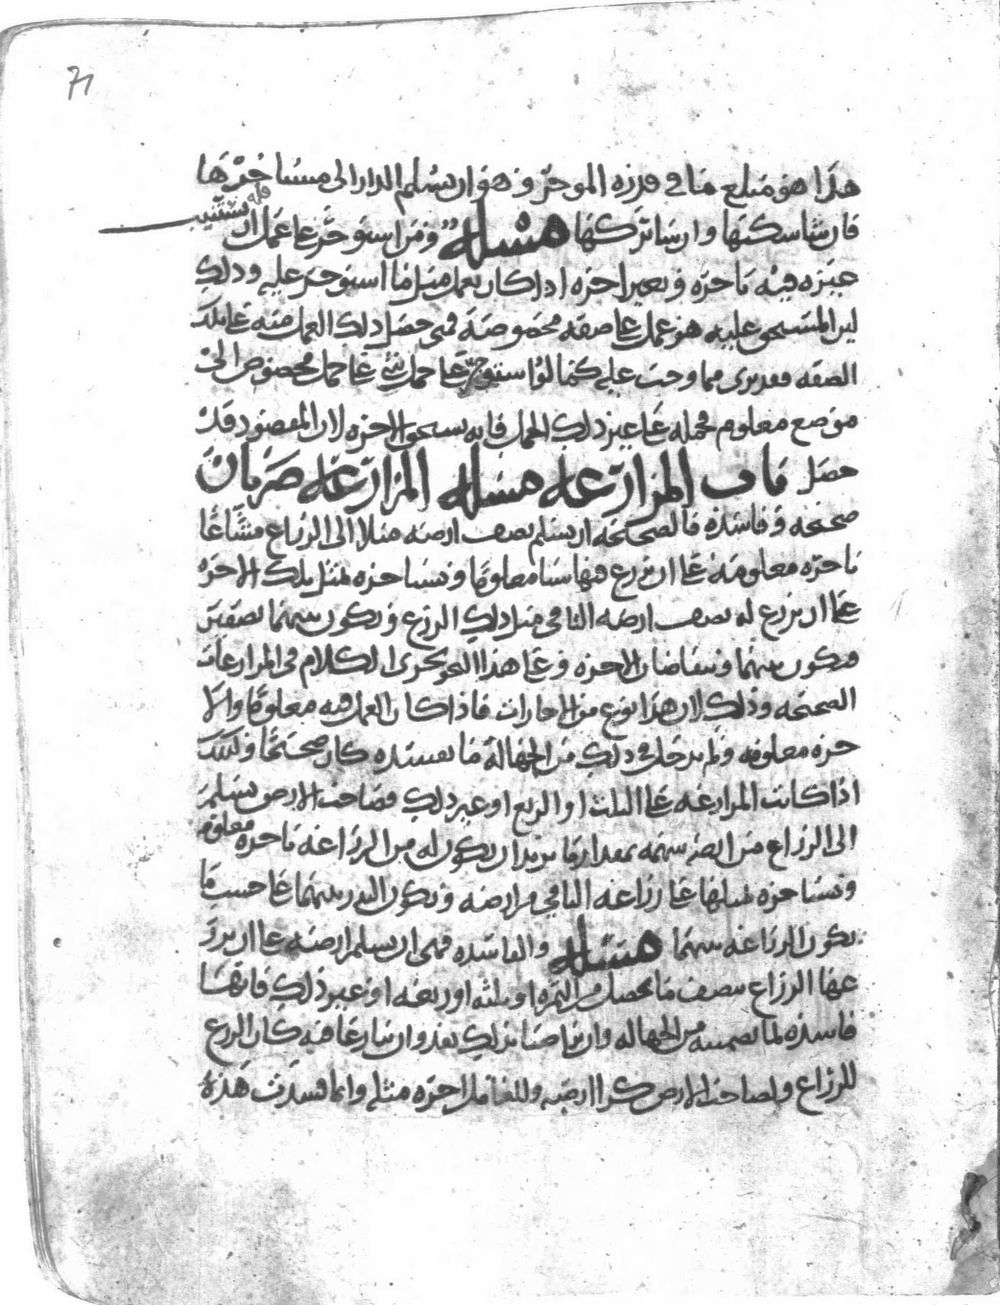 71
هذا هو مبلغ ما في قدرة الموجر وهو ان يسلم الدار الى مستاجرها
فان شا سكنها وان شا تركها مسله ومن استوجر على عمل ان يستنيب
غيره فيه باجره وبغير اجره اذا كان يعمل مثل ما استوجر عليه وذلك
لان المستحق عليه هو عمل على صفه مخصوصة فمتى حصل ذلك العمل منه على تلك
الصفه فقد برى مما وجب عليه كما لو استوجر على حمل شي على حمل مخصوص الى
موضع معلوم فحمله على غير ذلك الحمل فانه يستحق الاجره لان المقصود قد
حصل باب المزارعه مسله المزارعه ضربان
صحيحه وفاسده فالصحيحه ان يسلم نصف ارضه مثلا الى الزراع مشاعا
باجره معلومه على ان يزرع فيها شيا معلوما ويستاجره بمثل تلك الاجره
على ان يزرع له نصف ارضه الباقي مثل ذلك الزرع ويكون بينهما نصفين
فيكون بينهما ويتقاضان الاجره وعلى هذا النحو يجرى الكلام في المزارعات
الصحيحه وذلك لان هذا نوع من الاجارات فاذا كان العمل فيه معلوما والا
جره معلومه ولم يدخل في ذلك من الجهالة ما يفسده كان صحيحا وكذلك
اذا كانت المزارعه على الثلث او الربع او غير ذلك فصاحب الارض يسلم
الى الزراع من ارضه بمقدار ما يريد ان يكون له من الزراعه باجره معلومه
ويستاجره بمثلها على زراعه الباقي من ارضه ويكون البذر بينهما على حسب ما
يكون الزراعه بينهما مسله والفاسده فهى ان يسلم ارضه على ان يزر
عها الزراع بنصف ما يحصل من الثمره او بثلثه او ربعه او غير ذلك فانها
فاسده لما تضمنه من الجهاله وان تراضيا بذلك نفذ وان تنازعا فيه كان الزرع
للزراع ولصاحب الارض كرا ارضه وللعامل اجره مثله وانما فسدت هذه